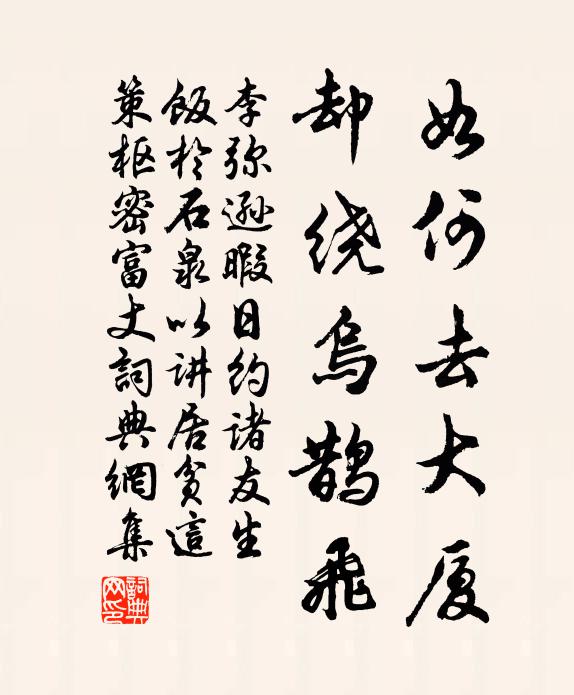 如何去大厦
却绕乌鹊飛
李弥逊暇日约诸友生
饭於石泉以讲居贫這
策枢密富丈詞典網集
詞典
网印